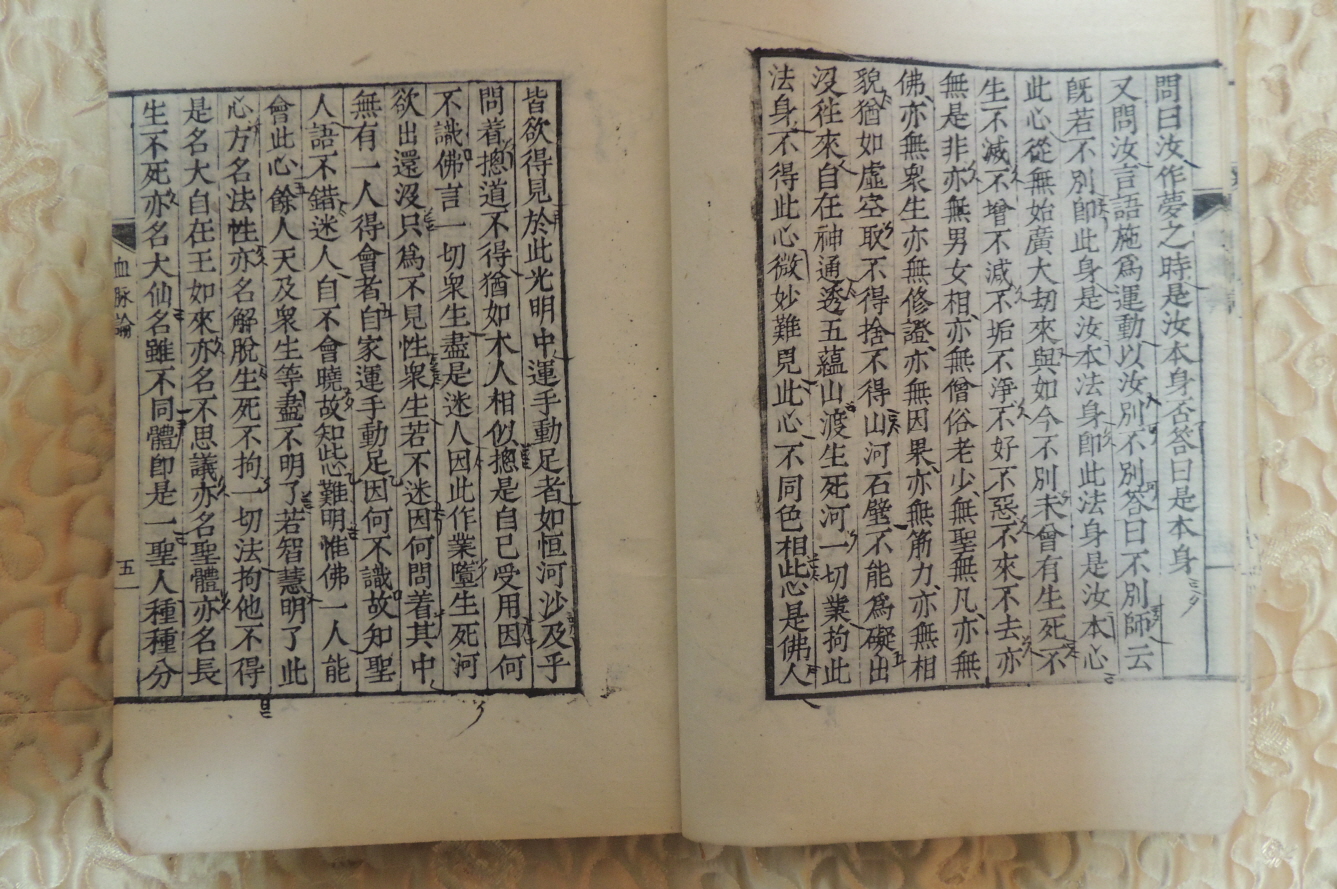 問曰汝作夢之時是汝本身否答曰是本身
又問汝言語施爲運動以汝別不別答曰不別師云
旣若不別卽此身是汝本法身卽此法身是汝本心
此心從無始廣大劫來與如今不別未曾有生死不
生不滅不增不減不垢不淨不好不惡不來不去亦
無是非亦無男女相亦無僧俗老少無聖無凡亦無
佛亦無衆生亦無修證亦無因果亦無筋力亦無相
貌猶如虛空取不得捨不得山河石壁不能爲礙出
沒徃來自在神通透五蘊山渡生死河一切業拘此
法身不得此心微妙難見此心不同色相此心是佛人
皆欲得見於此光明中運手動足者如恒河沙及乎
問着摠道不得猶如木人相似摠是自己受用因何
不識佛言一切衆生盡是迷人因此作業墮生死河
欲出還沒只爲不見性衆生若不迷因何問着其中
無有一人得會者自家運手動足因何不識故知聖
人語不錯迷人自不會曉故知此難明惟佛一人能
會此心餘人天及衆生等盡不明了若智慧明了此
心方名法性亦名解脫生死不拘一切法拘他不得
是名大自在王如來亦名不思議亦名聖體亦名長
生不死亦名大仙名雖不同體卽是一聖人種種分
血脉論 五